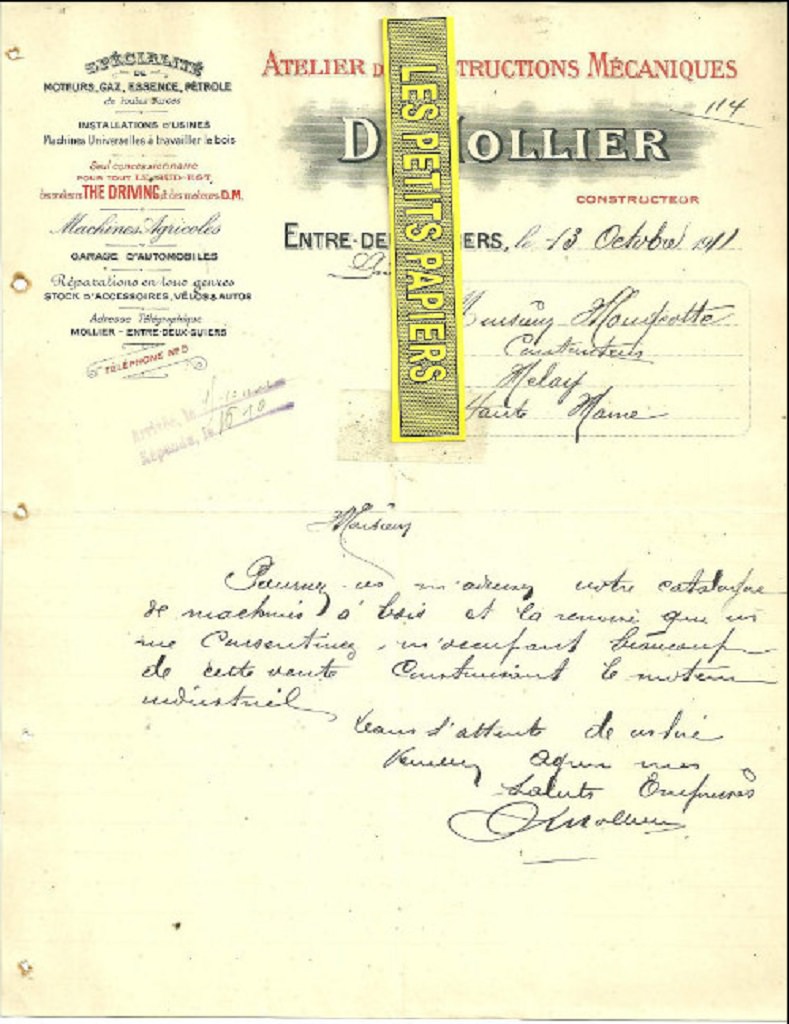 SPÉCIALITÉ
DE
MOTEURS, GAZ, ESSENCE, PÉTROLE
de toutes Forces
INSTALLATIONS D'USINES
Machines Universelles à travailler le bois
Seul concessionnaire
POUR TOUT LE SUD-EST
des moteurs THE DRIVING et des moteurs D.M.
Machines Agricoles
GARAGE D'AUTOMOBILES
Réparations en tous genres
STOCK D'ACCESSOIRES, VÉLOS & AUTOS
Adresse Télégraphique
MOLLIER - ENTRE-DEUX-GUIERS
TÉLÉPHONE Nº 5
ATELIER D STRUCTIONS MÉCANIQUES
114
D OLLIER
CONSTRUCTEUR
ENTRE-DE ERS, le 13 Octobre 1911
LES PETITS PAPIERS
Monsieur
Constructeur
Melay
Haute Marne
Répondu, le
Monsieur
Pouvez vous m'adresser votre catalogue
de machines à bois et la remise que
me m'occupant beaucoup
de cette vente Construisant le moteur
industriel
Dans l'attente de
Veuillez agréer mes
Saluts Empressés
DMollier